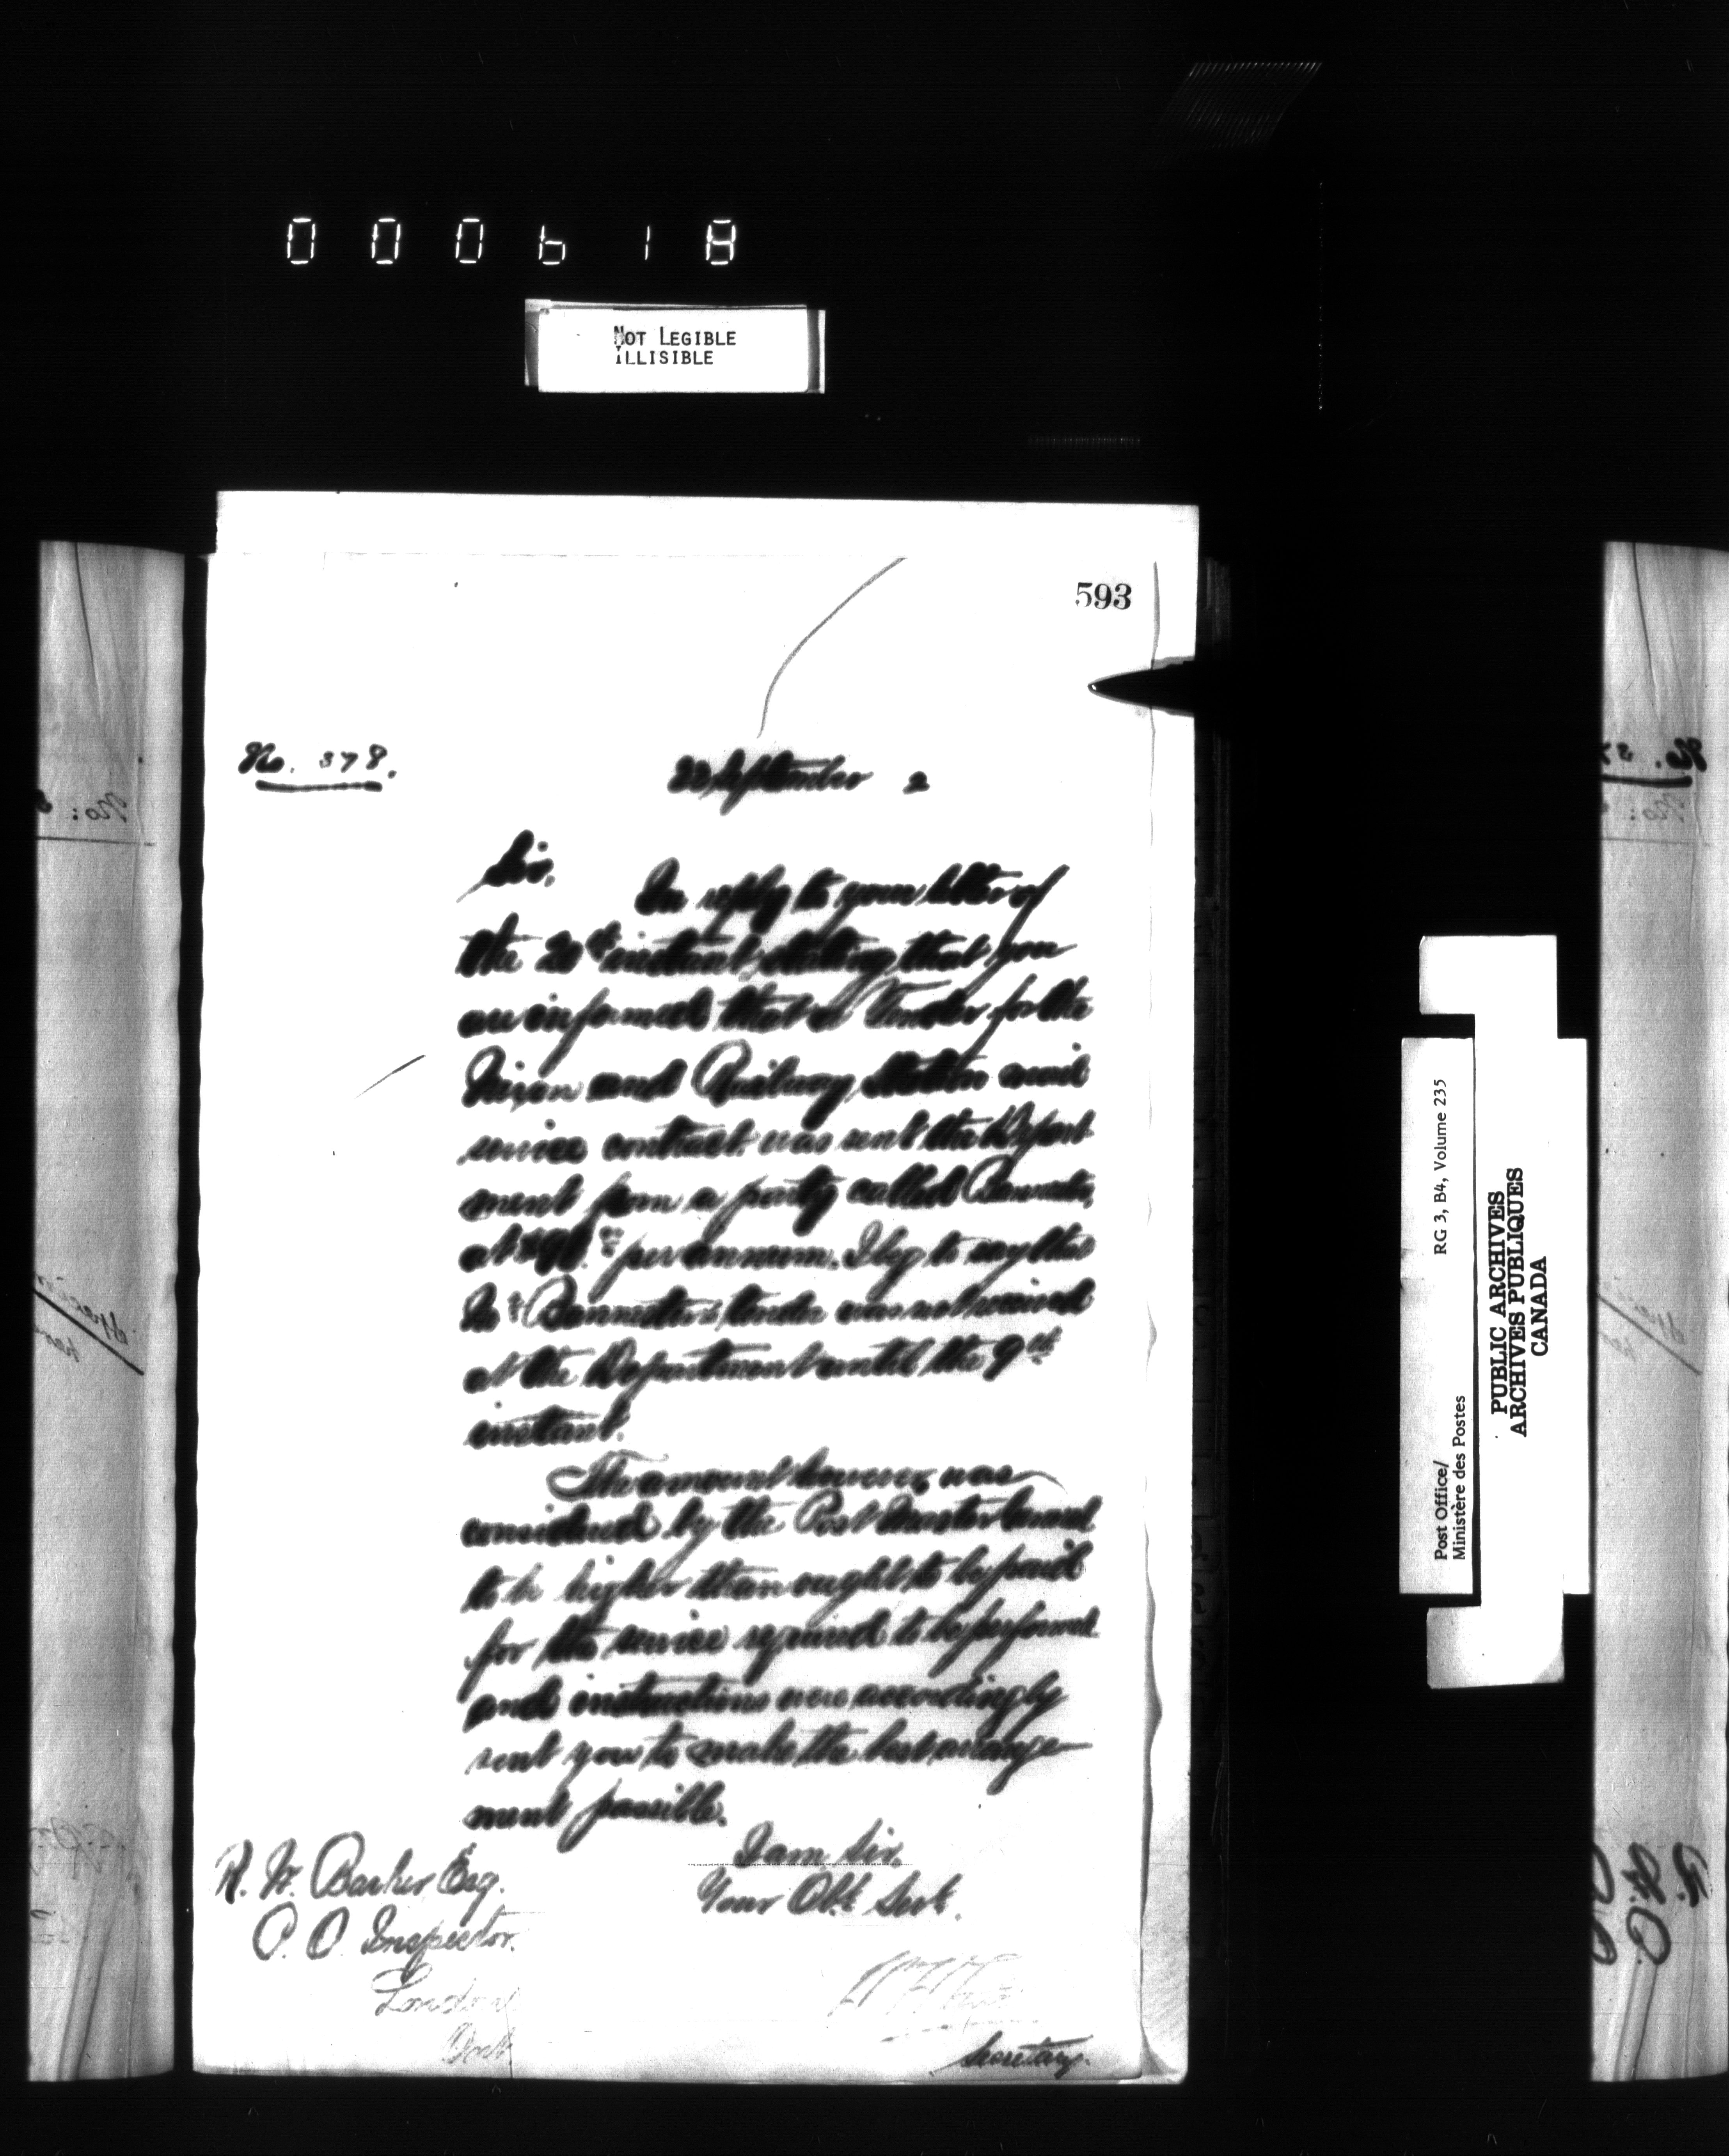 000618
NOT LEGIBLE
ILLISIBLE
593
No. 378.
22 September 2
Sir,
In reply to your letter of
the 20th instant, stating that you
are informed that a Tender for the
Nixon and Railway Station mail
service contract was sent the Depart-
ment from a party called Bannister,
at $ per annum. I beg to say that
Mr Bannister's tender was not received
at the Department until the 9th
instant.
The amount however, was
considered by the Post Master General
to be higher than ought to be paid
for the service required to be performed
and instructions were accordingly
sent you to make the best arrange-
ment possible.
I am, Sir,
Your Obt. Servt.
R. W. Barker, Esq.
P. O. Inspector.
London
Ont.
Secretary.
Post Office/
Ministère des Postes
RG 3, B4, Volume 235
PUBLIC ARCHIVES
ARCHIVES PUBLIQUES
CANADA